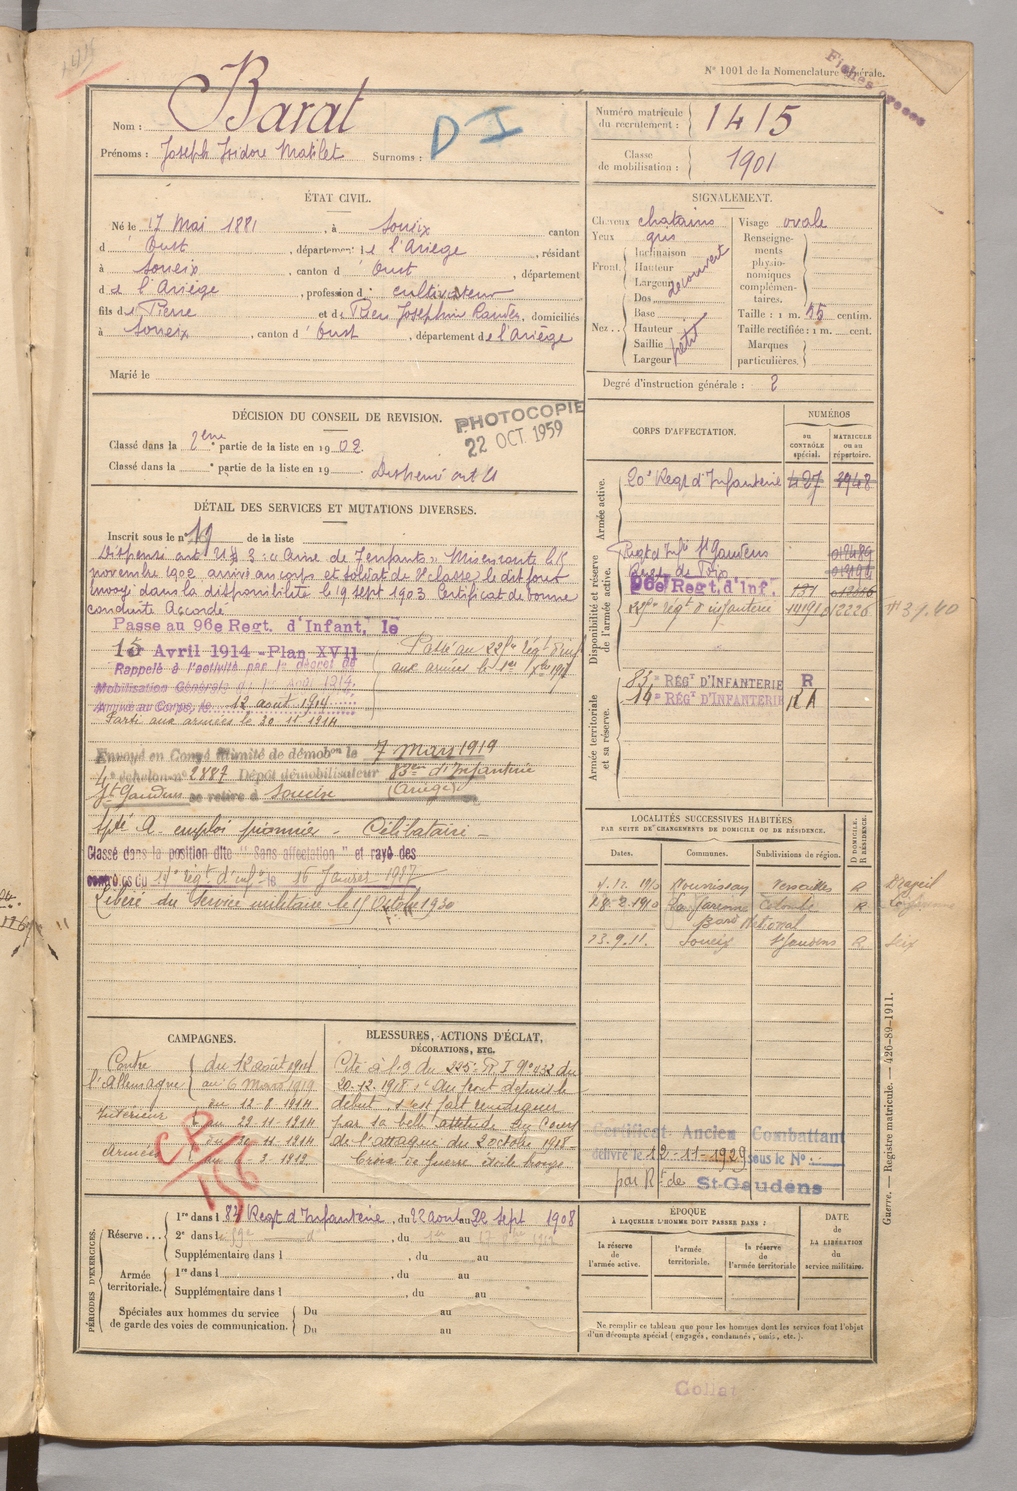 1415
Fiches
N° 1001 de la Nomenclature générale.
Nom : Barat
Prénoms : Joseph Isidore Matilet Surnoms :
DI
Numéro matricule du recrutement : 1415
Classe de mobilisation : 1901
ÉTAT CIVIL.
Né le 17 Mai 1881, à Soueix canton
d' Oust, département de l'Ariège, résidant
à Soueix, canton d' Oust, département
de l'Ariège, profession d cultivateur
fils de Pierre et de Josephine, domiciliés
à Soueix, canton d' Oust, département de l'Ariège
Marié le
SIGNALEMENT.
Cheveux chatains
Yeux gris
Front. Inclinaison
Hauteur
Largeur
découvert
Nez .. Dos
Base
Hauteur
Saillie
Largeur
petit
Visage ovale
Renseignements physionomiques complémentaires.
Taille : 1 m. 55 centim.
Taille rectifiée : 1 m. cent.
Marques particulières.
Degré d'instruction générale : 2
DÉCISION DU CONSEIL DE REVISION.
PHOTOCOPIE
22 OCT 1959
Classé dans la 2ème partie de la liste en 1902.
Classé dans la partie de la liste en 19
Dispensé art 21
CORPS D'AFFECTATION.
NUMÉROS
au CONTRÔLE spécial.
MATRICULE ou au répertoire.
Armée active.
20e Regt d'Infanterie 427 3948
Disponibilité et réserve de l'armée active.
Regt d'Infie St Gaudens
96e Regt. d'Inf.
régt d'infanterie 12226
Armée territoriale et sa réserve.
83e RÉGt D'INFANTERIE R
14e RÉGt D'INFANTERIE RA
DÉTAIL DES SERVICES ET MUTATIONS DIVERSES.
Inscrit sous le n° 19 de la liste
Dispensé art 21 § 3 : « Ainé de 7 enfants » Mis en route le 15
novembre 1902 arrivé au corps et soldat de 2e classe le dit jour
Envoyé dans la disponibilité le 19 sept 1903. Certificat de bonne
conduite Accordé
Passe au 96e Regt. d'Infant. le
1er Avril 1914 - Plan XVII
Rappelé à l'activité par le décret de
Mobilisation Générale du 1er Août 1914.
Arrivé au Corps, le 12 août 1914
Parti aux armées le 30 11 1914
Passé au régt d'inf
aux armées le 1er
Envoyé en Congé illimité de démobon le 7 Mars 1919
4e échelon n° 2887 Dépôt démobilisateur 83e d'Infanterie
St Gaudens se retire à Soueix (Ariège)
Apte A. emploi pionnier - Célibataire -
Classé dans la position dite "Sans affectation" et rayé des
contrôles du 14e régt d'infie le 16 Janvier 1927
Libéré du Service militaire le 15 Octobre 1930
LOCALITÉS SUCCESSIVES HABITÉES
PAR SUITE DE CHANGEMENTS DE DOMICILE OU DE RÉSIDENCE.
Dates. Communes. Subdivisions de région. D DOMICILE. R RÉSIDENCE.
Versailles R
28.2.1910 R
National
23.9.11. Soueix St Gaudens R Seix
CAMPAGNES.
Contre l'Allemagne du 12 août 1914
au 6 Mars 1919
Intérieur du 12-8-1914
au 29-11-1914
Armées du 30 11 1914
au 6-3-1919
CP/156
BLESSURES, ACTIONS D'ÉCLAT,
DÉCORATIONS, ETC.
Cité à l'O du 225e R I N° 432 du
20.12.1918 : "Au front depuis le
début, s'est fait remarquer
par sa belle attitude au cours
de l'attaque du 2 octobre 1918-
Croix de Guerre étoile bronze
Certificat Ancien Combattant
délivré le 12-11-1929 sous le N° :
par Rt de St-Gaudens
PÉRIODES D'EXERCICES.
Réserve ...
1re dans l 83e Regt d'Infanterie, du 22 aout au 22 Sept 1908
2e dans l , du au
Supplémentaire dans l , du au
Armée territoriale.
1re dans l , du au
Supplémentaire dans l , du au
Spéciales aux hommes du service
de garde des voies de communication.
Du au
Du au
ÉPOQUE
À LAQUELLE L'HOMME DOIT PASSER DANS :
la réserve de l'armée active.
l'armée territoriale.
la réserve de l'armée territoriale
DATE DE LA LIBÉRATION du service militaire.
Ne remplir ce tableau que pour les hommes dont les services font l'objet
d'un décompte spécial (engagés, condamnés, omis, etc.).
Guerre. — Registre matricule. — 426-89-1911.
Collat